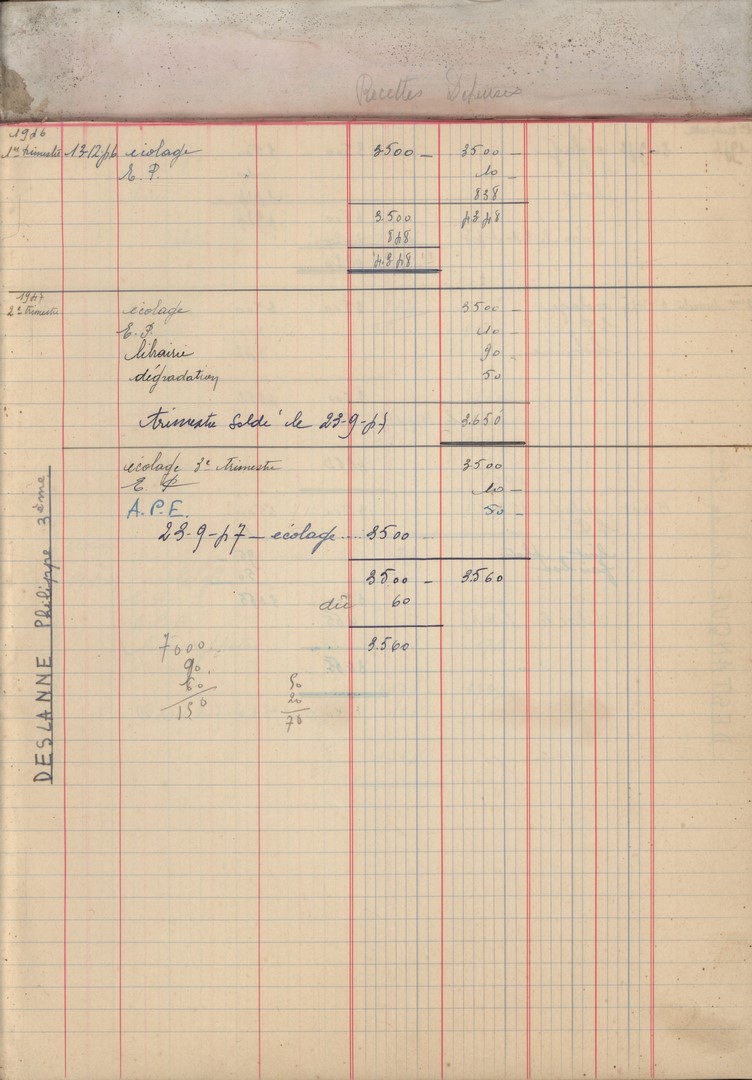 Recettes Dépenses
1956
1er trimestre 13-12-56 écolage 3500 - 3500 -
E. P. 10 -
838
3.500 4348
848
4.348
1957
2e trimestre
écolage 3500 -
E. P. 10 -
librairie 90 -
dégradation 50
trimestre soldé le 23-9-57 3.650
écolage 3e trimestre 3500
E. P. 10 -
A.P.E. 50 -
23-9-57 - écolage 3500
3500 - 3.560
dû 60
3.560
7000
90
60
150
50
20
70
DESLANNE Philippe 3ème